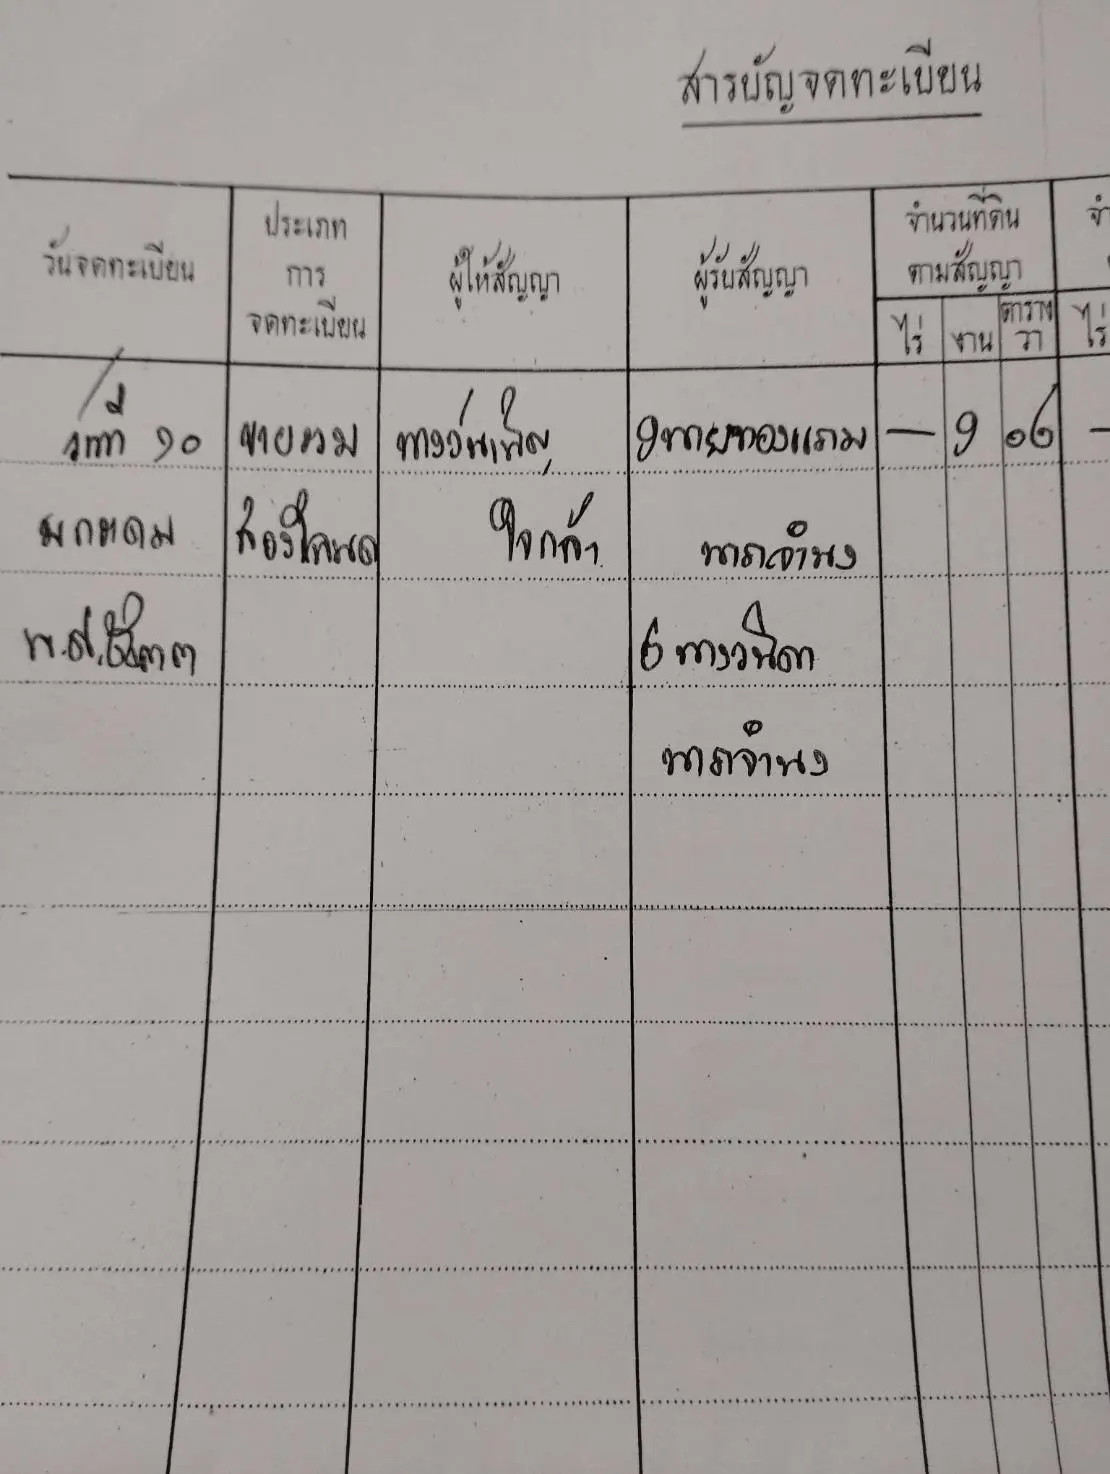 สารบัญจดทะเบียน
วันจดทะเบียน
ประเภท
การ
จดทะเบียน
ผู้ให้สัญญา
ผู้รับสัญญา
จำนวนที่ดิน
ตามสัญญา
ไร่
งาน
ตาราง
วา
ไร่
วันที่ ๑๐ ขายรวม นางวันเพ็ญ ๑ นายทองแถม — ๑ ๐๖
มกราคม สองโฉนด ใจกล้า
พ.ศ. ๒๕๓๓